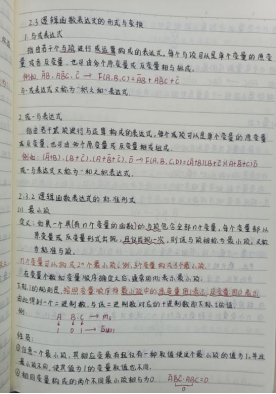 2.3 逻辑函数表达式的形式与变换
1. 与-或表达式
指由若干与项进行或运算构成的表达式,每个与项可以是单个变量的原变
量或者反变量,也可以由多个原变量或反变量相与组成。
例如: A̅B, AB̅C, C̅ → F(A,B,C) = A̅B + AB̅C + C̅
与-或表达式又称为"积之和"表达式
2. 或-与表达式
指由若干或项进行与运算构成的表达式,每个或项可以是单个变量的原变
量或反变量,也可以由多个原变量或反变量相或组成。
或-与表达式又称为"和之积"表达式
2.3.2 逻辑函数表达式的标准形式
1) 最小项
定义:如果一个具有n个变量的函数的与项包含全部n个变量,每个变量都以
原变量或反变量形式出现,且仅出现一次,则该与项被称为最小项,又称
为标准与项。
n个变量可以构成2ⁿ个最小项
在变量个数和变量顺序确定之后,通常用mᵢ表示最小项。
下标i的取值规则是:按照变量顺序将最小项中的原变量用1表示,反变量用0表示
由此得到一个二进制数,与该二进制数对应的十进制数即下标i的值。
例:
性质:
①任意一个最小项,其相应变量有且仅有一种取值使这个最小项的值为1,并且
最小项不同,使其值为1的变量取值也不同。
②相同变量构成的两个不同最小项相与为0。